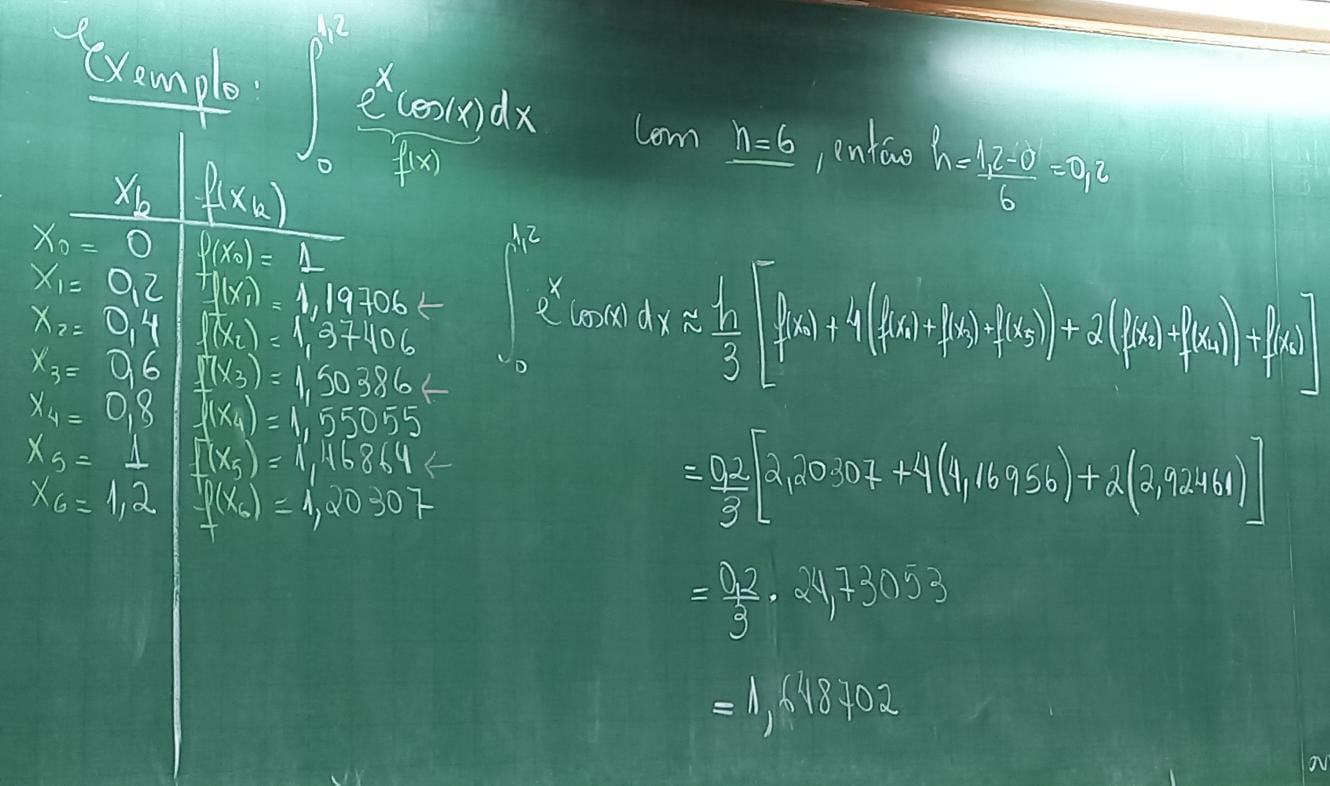 Exemplo: ∫₀^{1,2} e^x cos(x) dx com n=6, então h = (1,2-0)/6 = 0,2
f(x)
x_k | f(x_k)
x₀ = 0 | f(x₀) = 1
x₁ = 0,2 | f(x₁) = 1,19706 ←
x₂ = 0,4 | f(x₂) = 1,37406
x₃ = 0,6 | f(x₃) = 1,50386 ←
x₄ = 0,8 | f(x₄) = 1,55055
x₅ = 1 | f(x₅) = 1,46864 ←
x₆ = 1,2 | f(x₆) = 1,20307
∫₀^{1,2} e^x cos(x) dx ≈ h/3 [f(x₀) + 4(f(x₁) + f(x₃) + f(x₅)) + 2(f(x₂) + f(x₄)) + f(x₆)]
= 0,2/3 [2,20307 + 4(4,16956) + 2(2,92461)]
= 0,2/3 · 24,73053
= 1,648702